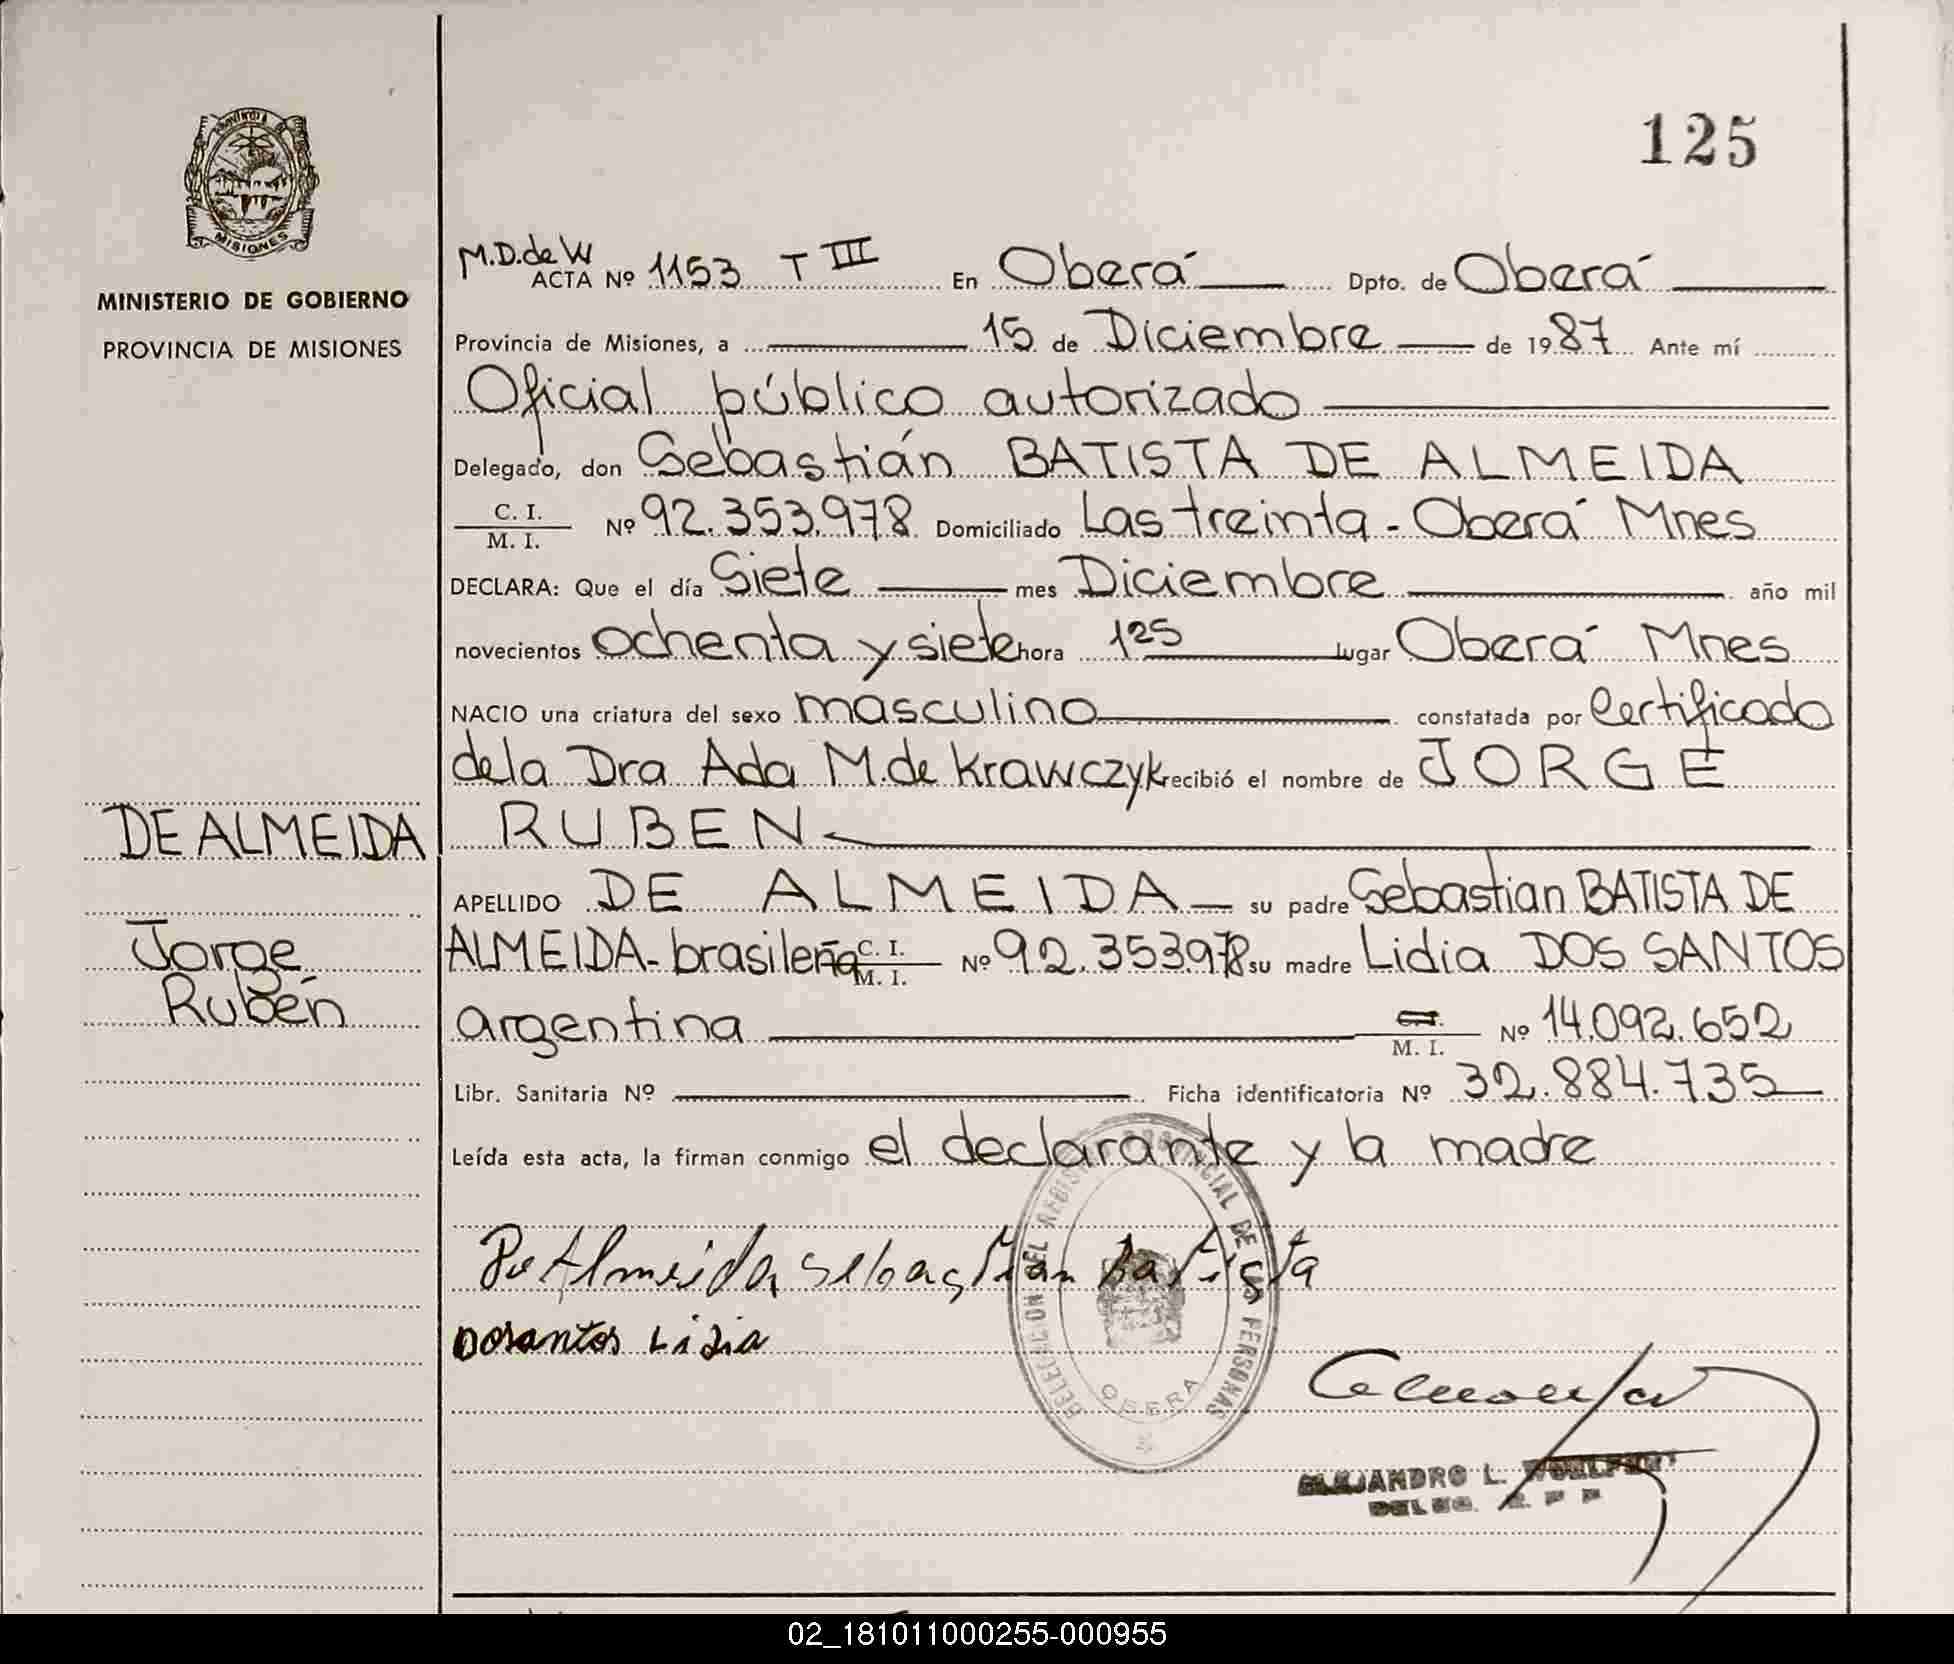 PROVINCIA
MISIONES
MINISTERIO DE GOBIERNO
PROVINCIA DE MISIONES
DE ALMEIDA
Jorge
Rubén
125
M.D.de W
ACTA Nº 1153 T III En Oberá Dpto. de Oberá
Provincia de Misiones, a 15 de Diciembre de 1987 Ante mí
Oficial público autorizado
Delegado, don Sebastián BATISTA DE ALMEIDA
C. I. / M. I. Nº 92.353.978 Domiciliado Las treinta - Oberá Mnes
DECLARA: Que el día Siete mes Diciembre año mil
novecientos ochenta y siete hora 125 lugar Oberá Mnes
NACIO una criatura del sexo masculino constatada por Certificado
de la Dra Ada M. de Krawczyk recibió el nombre de JORGE
RUBEN
APELLIDO DE ALMEIDA su padre Sebastian BATISTA DE
ALMEIDA - brasileña C. I. / M. I. Nº 92.353.978 su madre Lidia DOS SANTOS
argentina M. I. Nº 14.092.652
Libr. Sanitaria Nº Ficha identificatoria Nº 32.884.735
Leída esta acta, la firman conmigo el declarante y la madre
De Almeida Sebastian Batista
Dosantos Lidia
DELEGACION DEL REGISTRO PROVINCIAL DE LAS PERSONAS
OBERA
ALEJANDRO L.
02_181011000255-000955